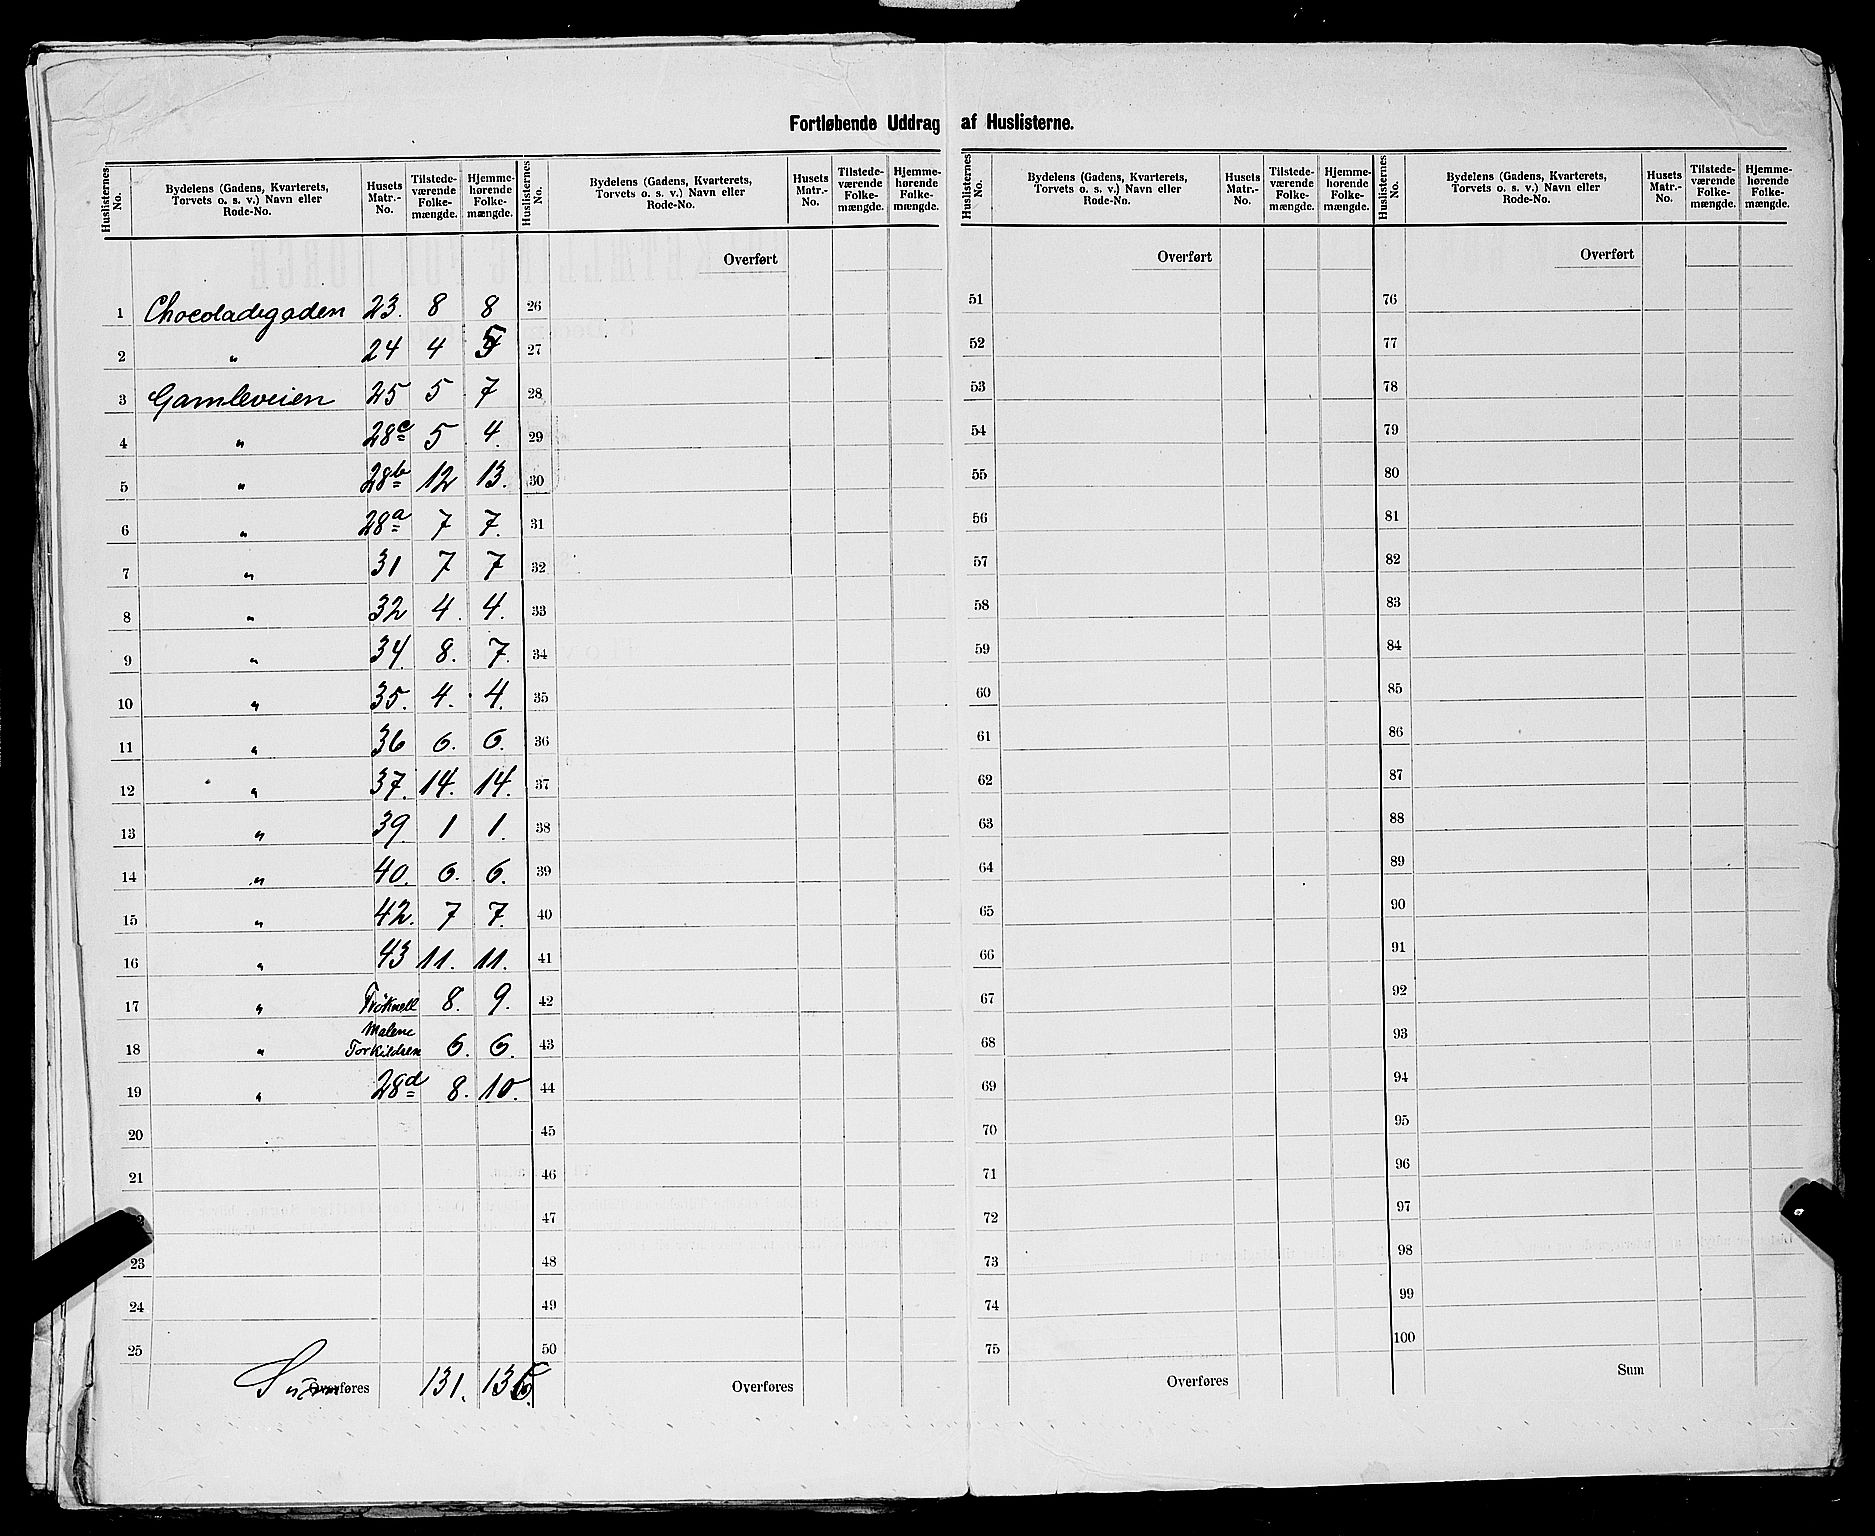 Fortløbende Uddrag af Huslisterne.
Huslisternes No. Bydelens (Gadens, Kvarterets, Torvets o. s. v.) Navn eller Rode-No. Husets Matr.-No. Tilstede-værende Folke-mængde. Hjemme-hørende Folke-mængde.
1 Chocoladegaden 23. 8 8
2 " 24 4 5
3 Gamleveien 25 5 7
4 " 28c 5 4.
5 " 28b 12 13.
6 " 28a 7 7.
7 " 31 7 7
8 " 32 4. 4.
9 " 34. 8. 7.
10 " 35. 4. 4.
11 " 36 6. 6.
12 " 37. 14. 14.
13 " 39. 1 1.
14 " 40. 6. 6.
15 " 42. 7 7.
16 " 43 11. 11.
17 " 8. 9.
18 " Malene Torkildsen 6. 6.
19 " 28d 8. 10.
20
21
23
24
25
Sum Overføres 131. 136.
Huslisternes No. Bydelens (Gadens, Kvarterets, Torvets o. s. v.) Navn eller Rode-No. Husets Matr.-No. Tilstede-værende Folke-mængde. Hjemme-hørende Folke-mængde.
Overført
26
27
28
29
30
31
32
33
34
35
36
37
38
39
40
41
42
43
44
45
46
47
48
49
50
Overføres
Huslisternes No. Bydelens (Gadens, Kvarterets, Torvets o. s. v.) Navn eller Rode-No. Husets Matr.-No. Tilstede-værende Folke-mængde. Hjemme-hørende Folke-mængde.
Overført
51
52
53
54
55
56
57
58
59
60
61
62
63
64
65
66
67
68
69
70
71
72
73
74
75
Overføres
Huslisternes No. Bydelens (Gadens, Kvarterets, Torvets o. s. v.) Navn eller Rode-No. Husets Matr.-No. Tilstede-værende Folke-mængde. Hjemme-hørende Folke-mængde.
Overført
76
77
78
79
80
81
82
83
84
85
86
87
88
89
90
91
92
93
94
95
96
97
98
99
100
Sum